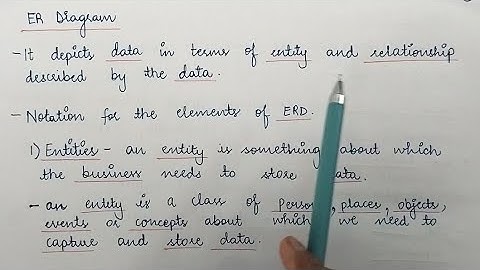 ER Diagram
- It depicts data in terms of entity and relationship
described by the data.
- Notation for the elements of ERD.
1) Entities - an entity is something about which
the business needs to store data.
- an entity is a class of persons, places, objects,
events or concepts about which we need to
capture and store data.